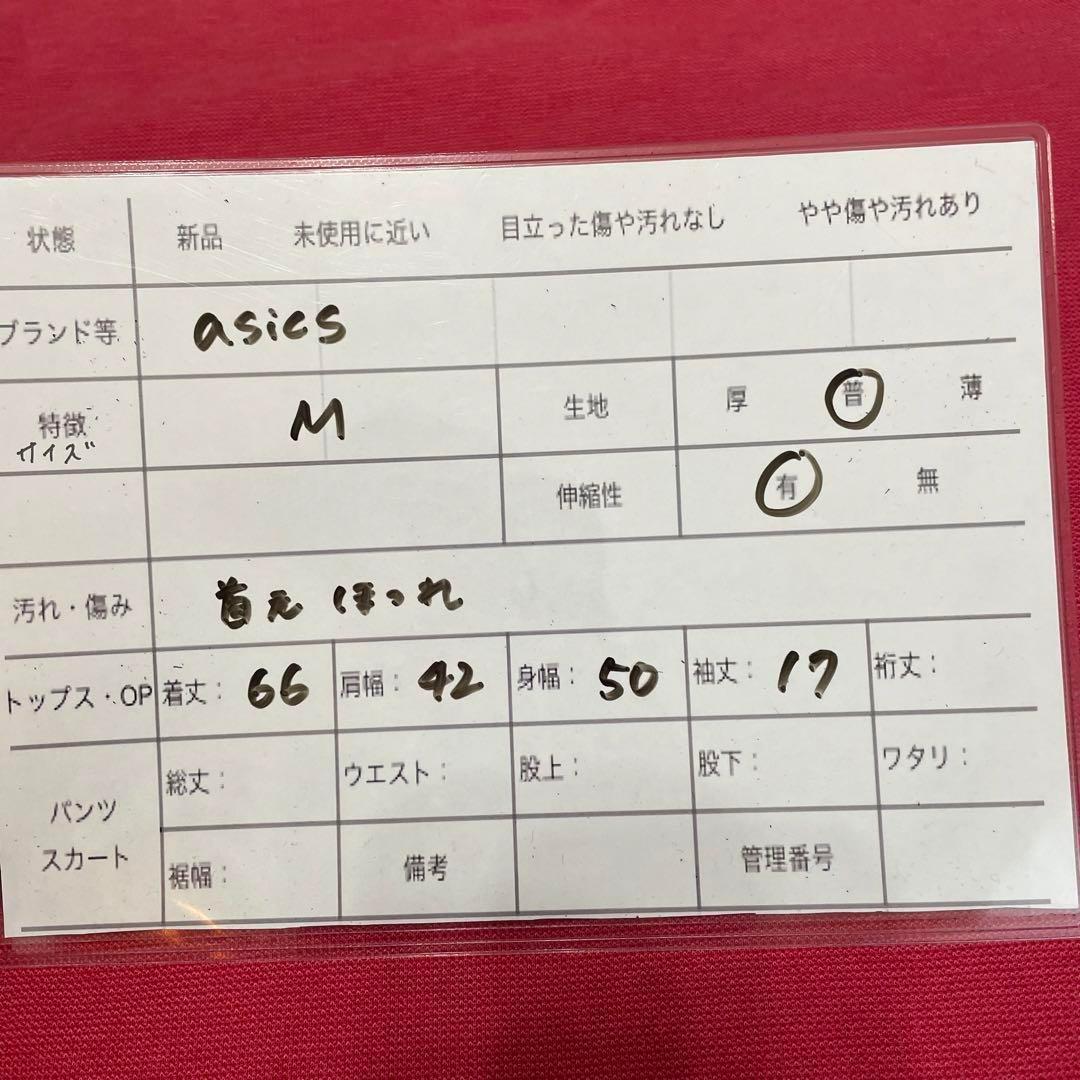 状態 新品 未使用に近い 目立った傷や汚れなし やや傷や汚れあり
ブランド等 asics
特徴 サイズ M 生地 厚 普 薄
伸縮性 有 無
汚れ・傷み 首元 ほつれ
トップス・OP 着丈: 66 肩幅: 42 身幅: 50 袖丈: 17 裄丈:
パンツ スカート 総丈: ウエスト: 股上: 股下: ワタリ:
裾幅: 備考 管理番号